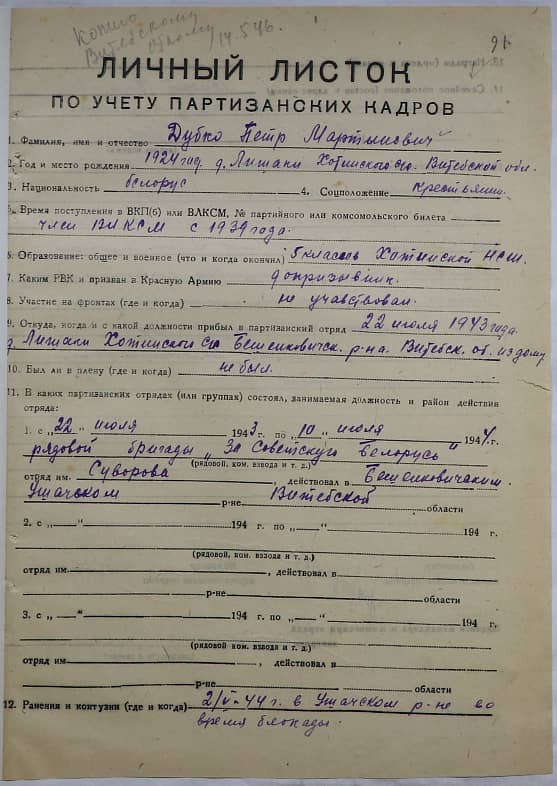 копию
Витебскому
Обкому 14.5.46.
91
ЛИЧНЫЙ ЛИСТОК
ПО УЧЕТУ ПАРТИЗАНСКИХ КАДРОВ
1. Фамилия, имя и отчество Дубко Петр Мартынович
2. Год и место рождения 1924 год д. Лишаки Хотинского с/с. Витебской обл.
3. Национальность белорус 4. Соцположение крестьянин
5. Время поступления в ВКП(б) или ВЛКСМ, № партийного или комсомольского билета
член ВЛКСМ с 1939 года.
6. Образование: общее и военное (что и когда окончил) 5 классов Хотинской НСШ.
7. Каким РВК и призван в Красную Армию допризывник.
8. Участие на фронтах (где и когда) не учавствовал.
9. Откуда, когда и с какой должности прибыл в партизанский отряд 22 июля 1943 года
д. Лишаки Хотинского с/с Бешенковичск. р-на. Витебск. об. из дому
10. Был ли в плену (где и когда) не был.
11. В каких партизанских отрядах (или группах) состоял, занимаемая должность и район действия
отряда:
1. с „22“ июля 1943 г. по „10“ июля 1944 г.
рядовой бригады „За Советскую Белорусь“
(рядовой, ком. взвода и т. д.)
отряд им. Суворова, действовал в Бешенковичским.
Ушачском р-не Витебской области
2. с „—“ 194 г. по „—“ 194 г.
(рядовой, ком. взвода и т. д.)
отряд им. , действовал в
р-не области
3. с „—“ 194 г. по „—“ 194 г.
(рядовой, ком. взвода и т. д.)
отряд им , действовал в
р-не области
12. Ранения и контузии (где и когда) 2/V-44 г. в Ушачском р-не во
время блокады.